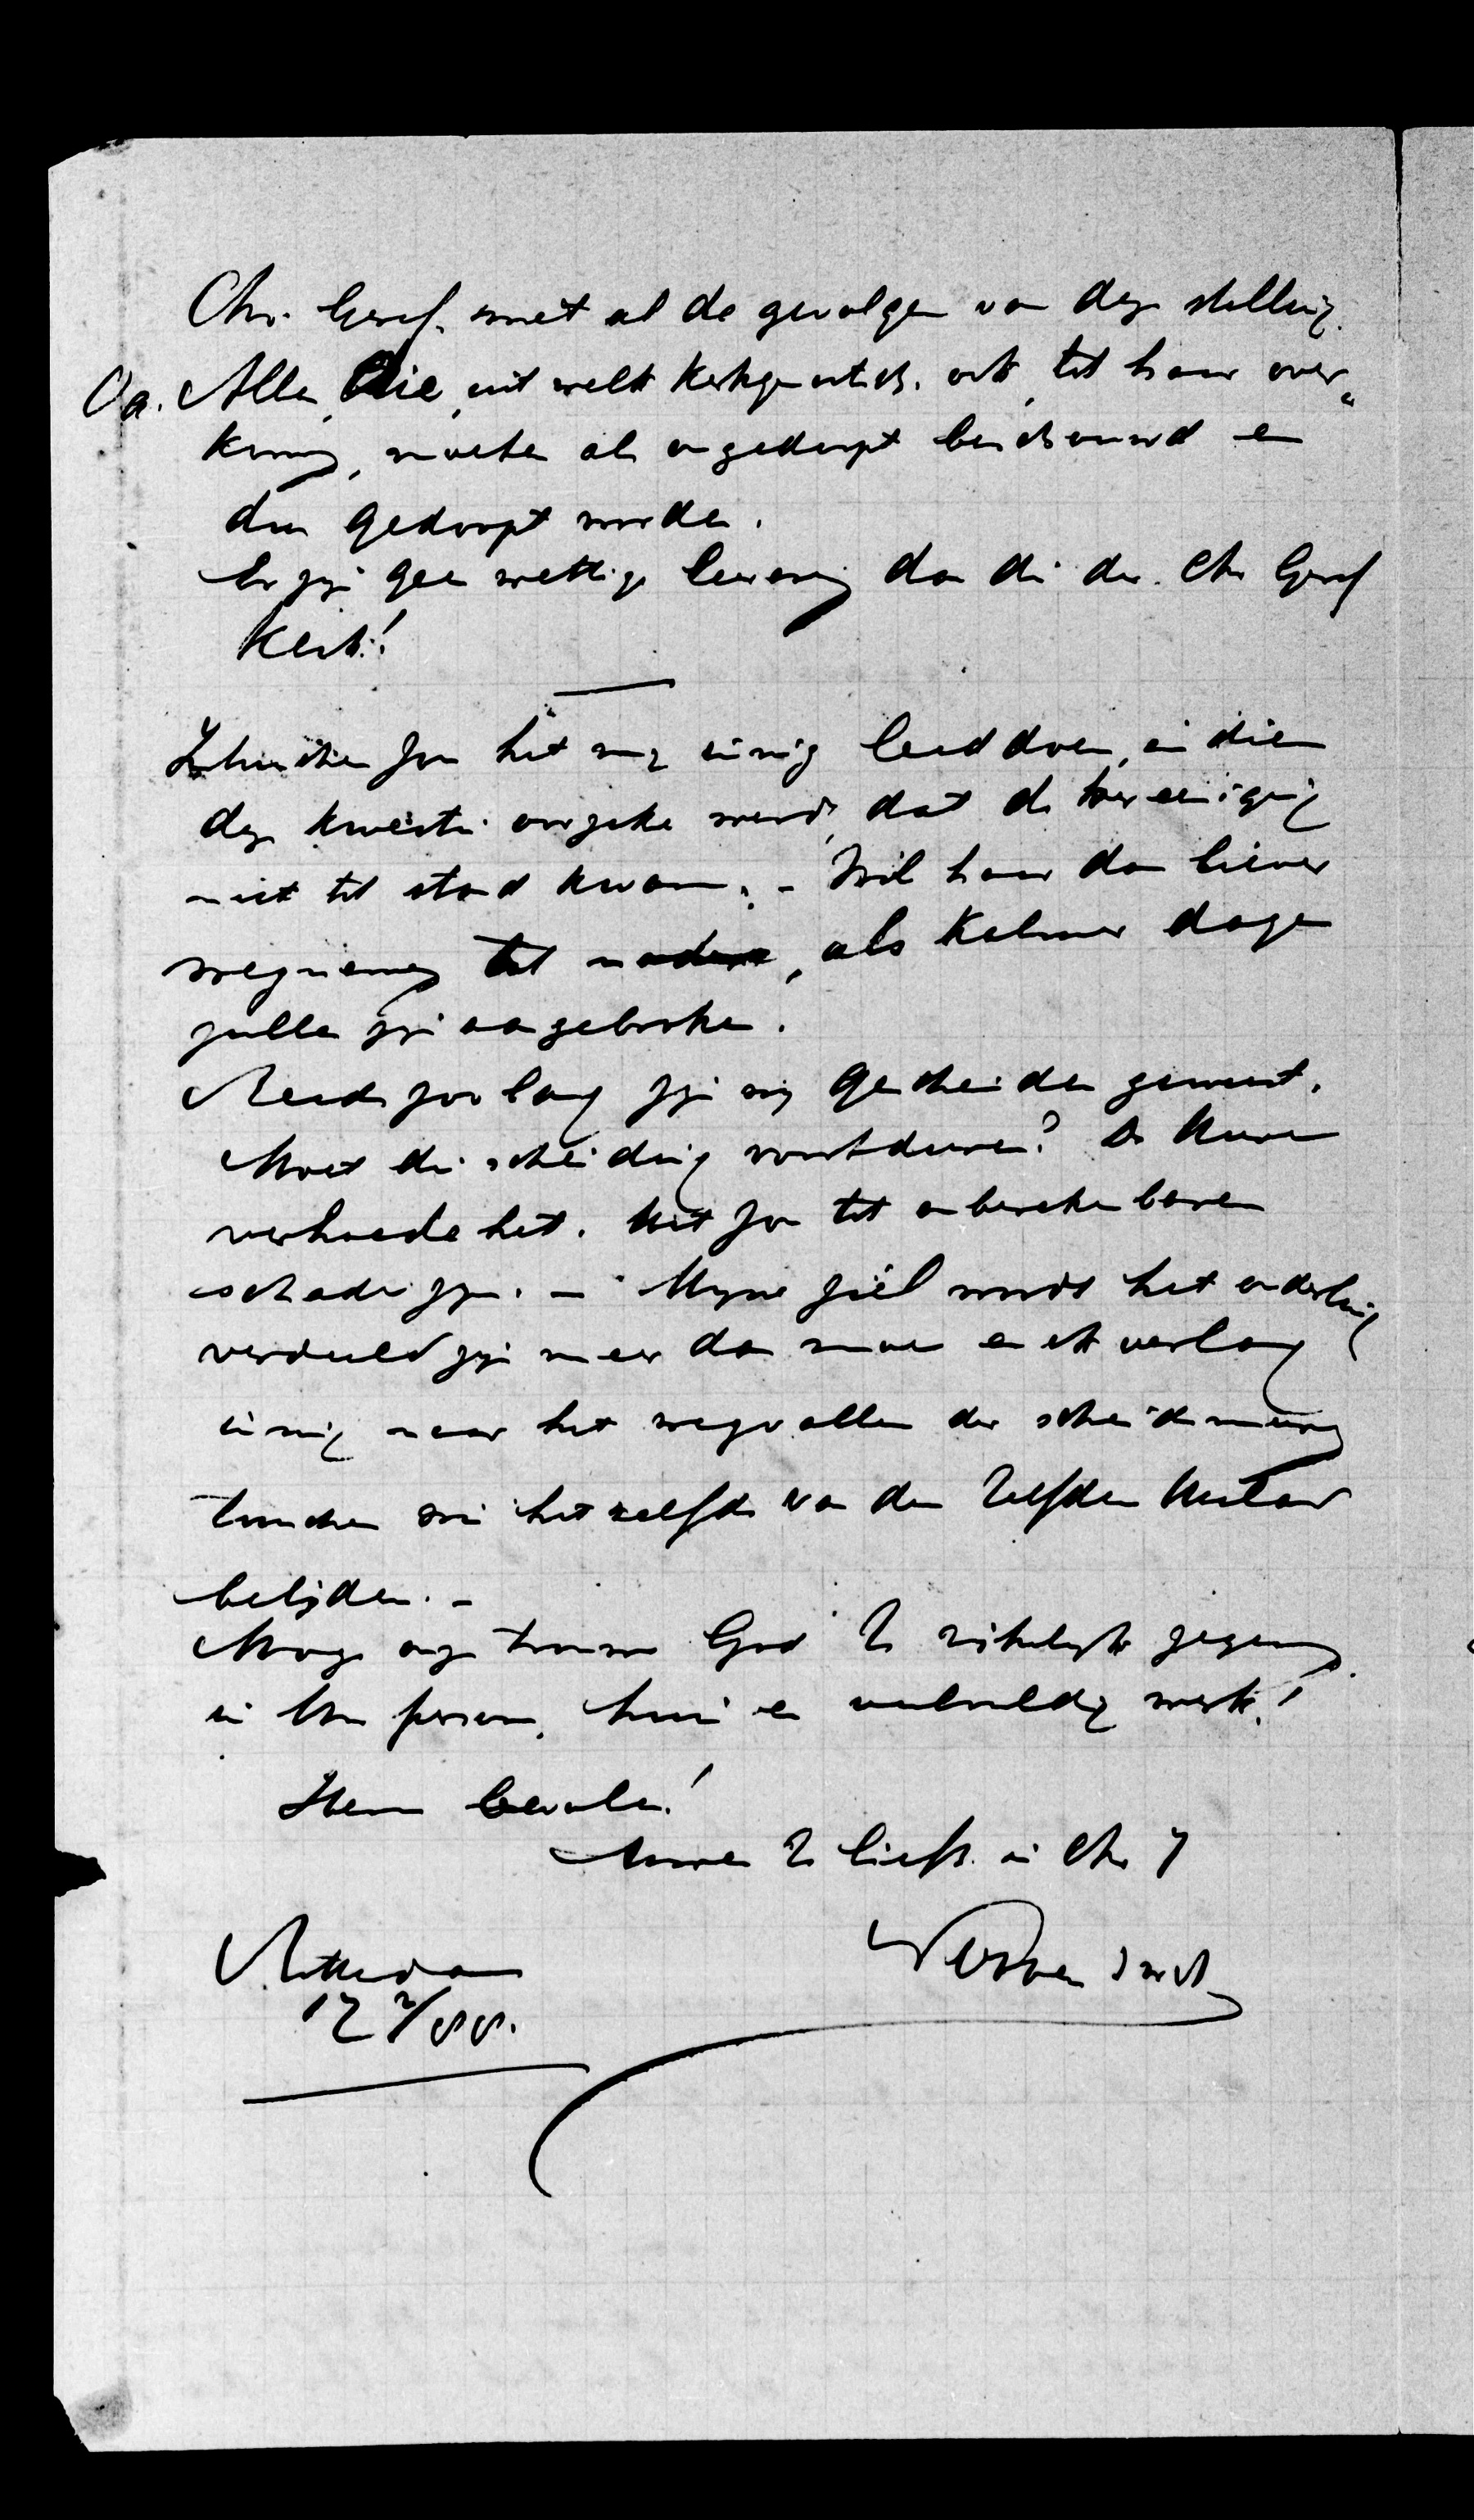 Chr. Geref. met al de gevolgen van deze stelling.
Va. Alle, die, uit welk kerkgenootsch. ook, tot haar over-
komen, moeten als ongedoopt beschouwd en
dus gedoopt worden.
Er zijn geen wettige leeraren dan die der Chr Geref
Kerk!
Intusschen zou het mij innig leed doen, indien
deze kwestie oorzake werd, dat de Vereeniging
niet tot stand kwam. - Wil haar dan liever
wegnemen tot, als kalmer dagen
zullen zijn aangebroken.
Reeds zoo lang zijn wij gescheiden geweest.
Moet die scheiding voortduren? De Heere
verhoede het. Het zou tot onberekenbaren
schade zijn. - Mijne ziel wordt het onderling
verdeeld zijn meer dan moe en ik verlang
innig naar het wegvallen der scheidsmuren
tusschen wie hetzelfde van den zelfden Heiland
belijden. -
Moge onze trouwe God U rijkelijk zegenen
in Uw persoon, huis en veelvuldig werk!
Hem bevolen!
Uwe U liefh. in Chr J
Rotterdam
12 2/88.